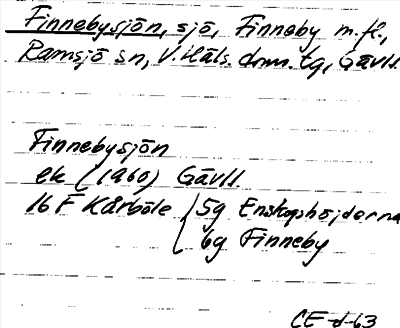 Finnebysjön, sjö, Finneby m.fl.,
Ramsjö sn, V. Häls. dms. tg, Gävll.
Finnebysjön
ek (1960) Gävll.
16 F Kårböle 5g Enskogshöjderna
6g Finneby
CE-d-63